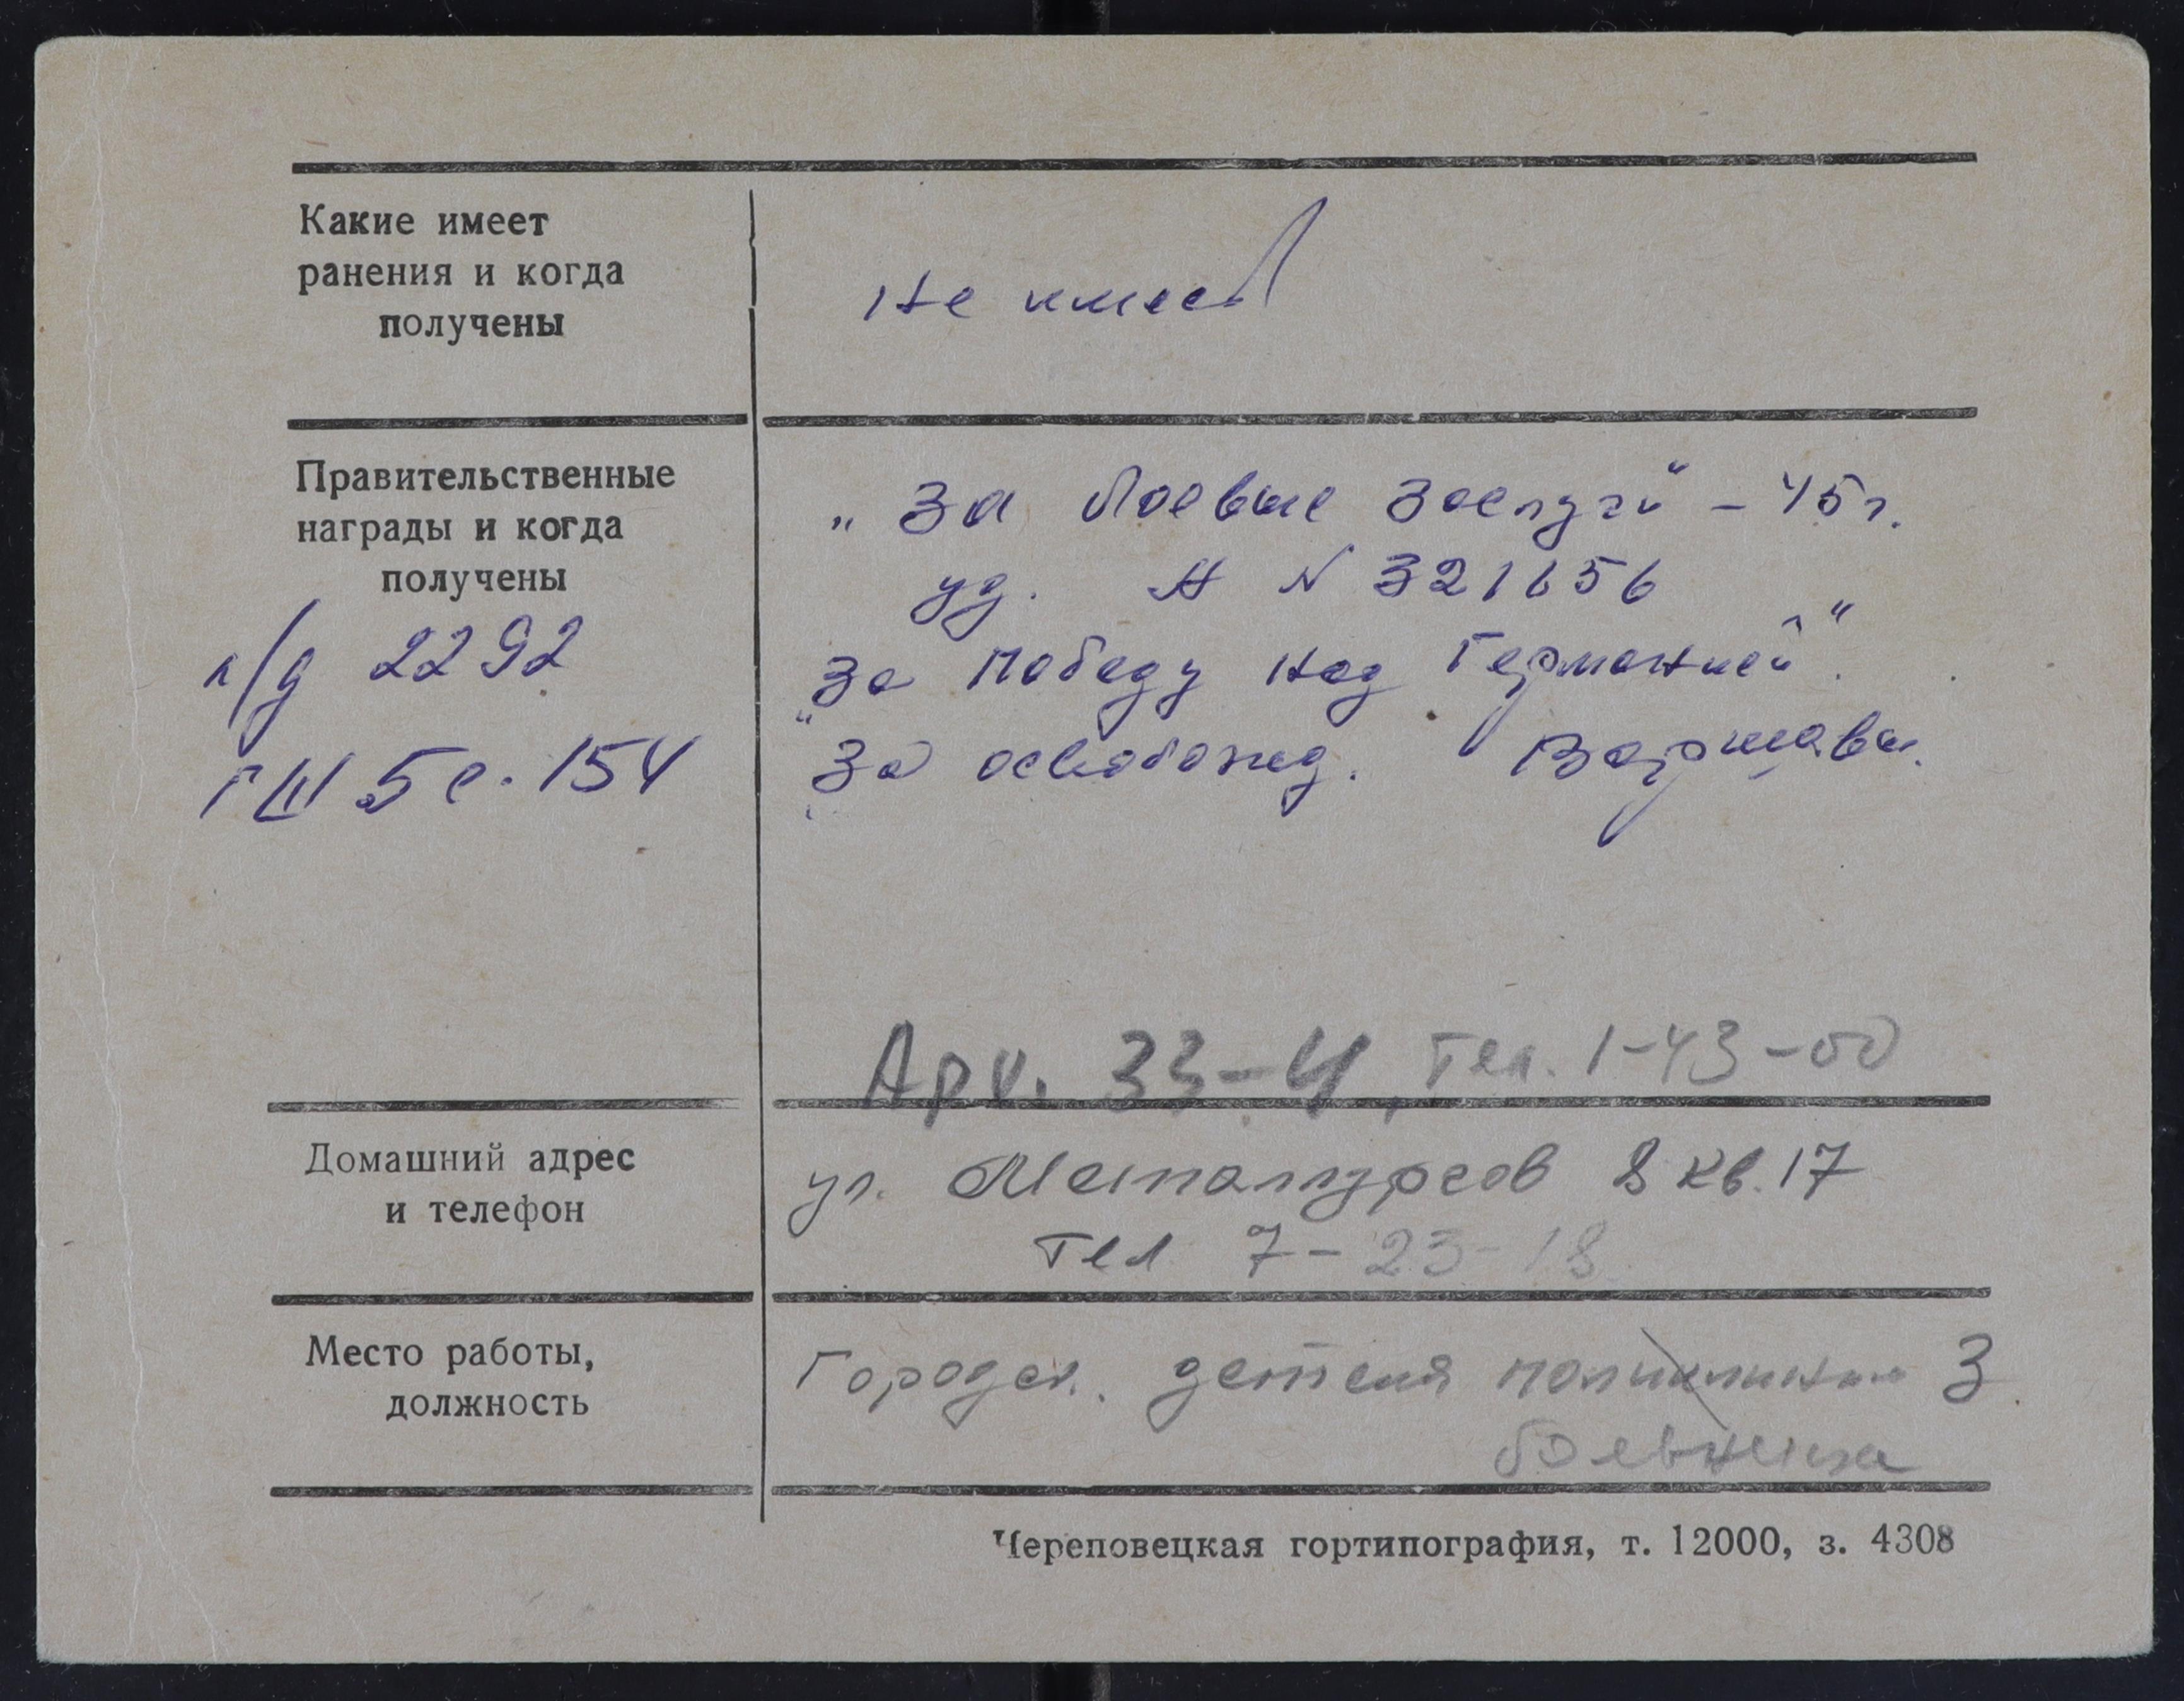 Какие имеет
ранения и когда
получены
не имеет
Правительственные
награды и когда
получены
„За боевые заслуги“ - 45г.
уд. А № 321656
За победу над Германией“.
„За освобожд. Варшавы.
л/д 2292
5 с. 154
Арх. 33-4, тел. 1-43-00
Домашний адрес
и телефон
ул. Металлургов 8 кв. 17
тел 7-23-18
Место работы,
должность
Городск. детская поликлиника 3
больница
Череповецкая гортипография, т. 12000, з. 4308